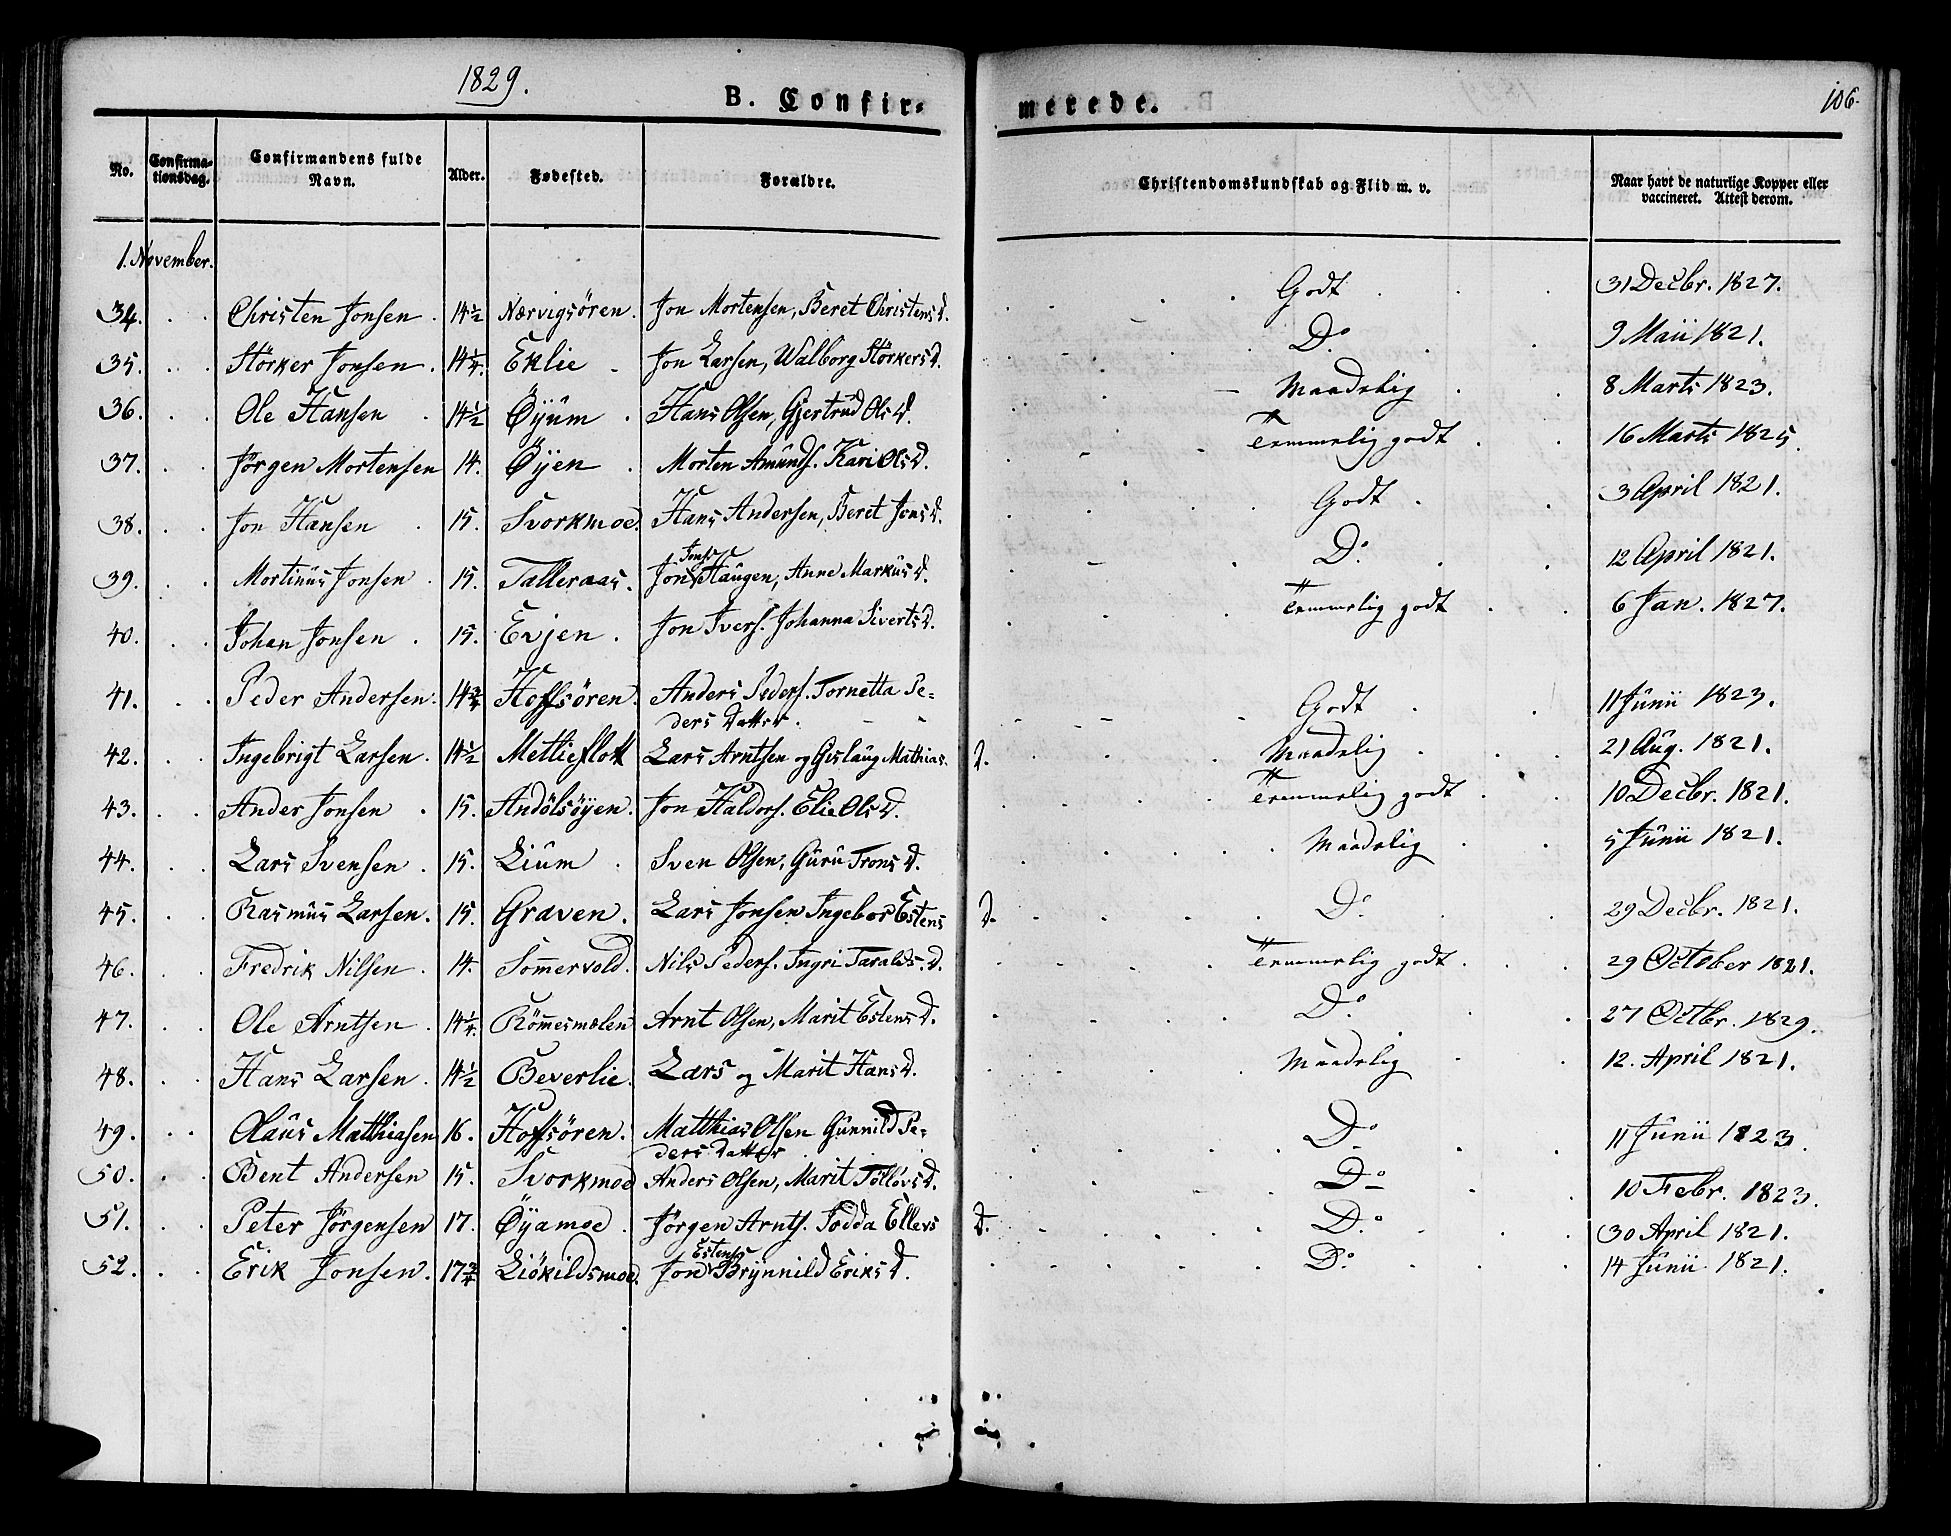 1829.
B. Confir- merede. 106.
No. Confirma-tionsdag. Confirmandens fulde Navn. Alder. Fødested. Forældre. Christendomskundskab og Flid m. v. Naar havt de naturlige Kopper eller vaccineret. Attest derom.
1. November.
34. Christen Jonsen. 14½ Nærvigsören. Jon Mortensen, Beret Christens D. Godt 31 Decbr. 1827.
35. Störker Jonsen. 14¼. Eklie Jon Larsen, Walborg Störkers D. Do. 9 Maii 1821.
36. Ole Hansen 14½ Öyüm Hans Olsen, Gjertrüd Ols D. Maadelig 8 Marts 1823.
37. Jörgen Mortensen 14. Öyen Morten Amünds. Kari Ols D. Temmelig godt 16 Marts 1825.
38. Jon Hansen 15. Svorkmoe. Hans Andersen, Beret Jons D. Godt 3 April 1821.
39. Mortinüs Jonsen 15. Tælleraas. Jon Jons. Haugen, Anne Markus D. Do. 12 April 1821.
40. Johan Jonsen 15. Evjen. Jon Ivers. Johanna Siverts D. Temmelig godt 6 Jan. 1827.
41. Peder Andersen. 14¾ Hoffsören. Anders Peders. Tornetta Pe-
ders Datter. Godt 11 Junii 1823.
42. Ingebrigt Larsen. 14½ Metlieflott Lars Arntsen og Gislaug Mathias D. Maadelig 21 Aug. 1821.
43. Ander Jonsen 15. Andölsöyen. Jon Haldors. Elie Ols D. Temmelig godt 10 Decbr. 1821.
44. Lars Svensen 15. Liüm Sven Olsen, Gürü Trons D. Maadelig 5 Junii 1821.
45. Rasmus Larsen. 15. Graven. Lars Jonsen Ingebor Estens D. Do. 29 Decbr. 1821.
46. Fredrik Nilsen 14. Sommervold. Nils Peders. Ingri Taralds. D. Temmelig godt 29 October 1821.
47. Ole Arntsen 14¼. Römmesmælen Arnt Olsen, Marit Estens D. Do. 27 Octbr. 1829.
48. Hans Larsen. 14½ Beverlie. Lars og Marit Hans D. Maadelig 12. April 1821.
49. Claüs Matthiasen 16. Hoffsören. Matthias Olsen Günnild Pe-
ders Datter Do 11 Junii 1823
50. Bent Andersen 15. Svorkmoe Anders Olsen, Marit Tölløvs D. Do 10 Febr. 1823.
51. Peter Jörgensen 17. Öyamoe. Jörgen Arnts. Todda Ellevs D. Do. 30 April 1821.
52. Erik Jonsen. 17¾ Liökildsmoe. Jon Estens. Brynnild Eriks D. Do 14 Junii 1821.